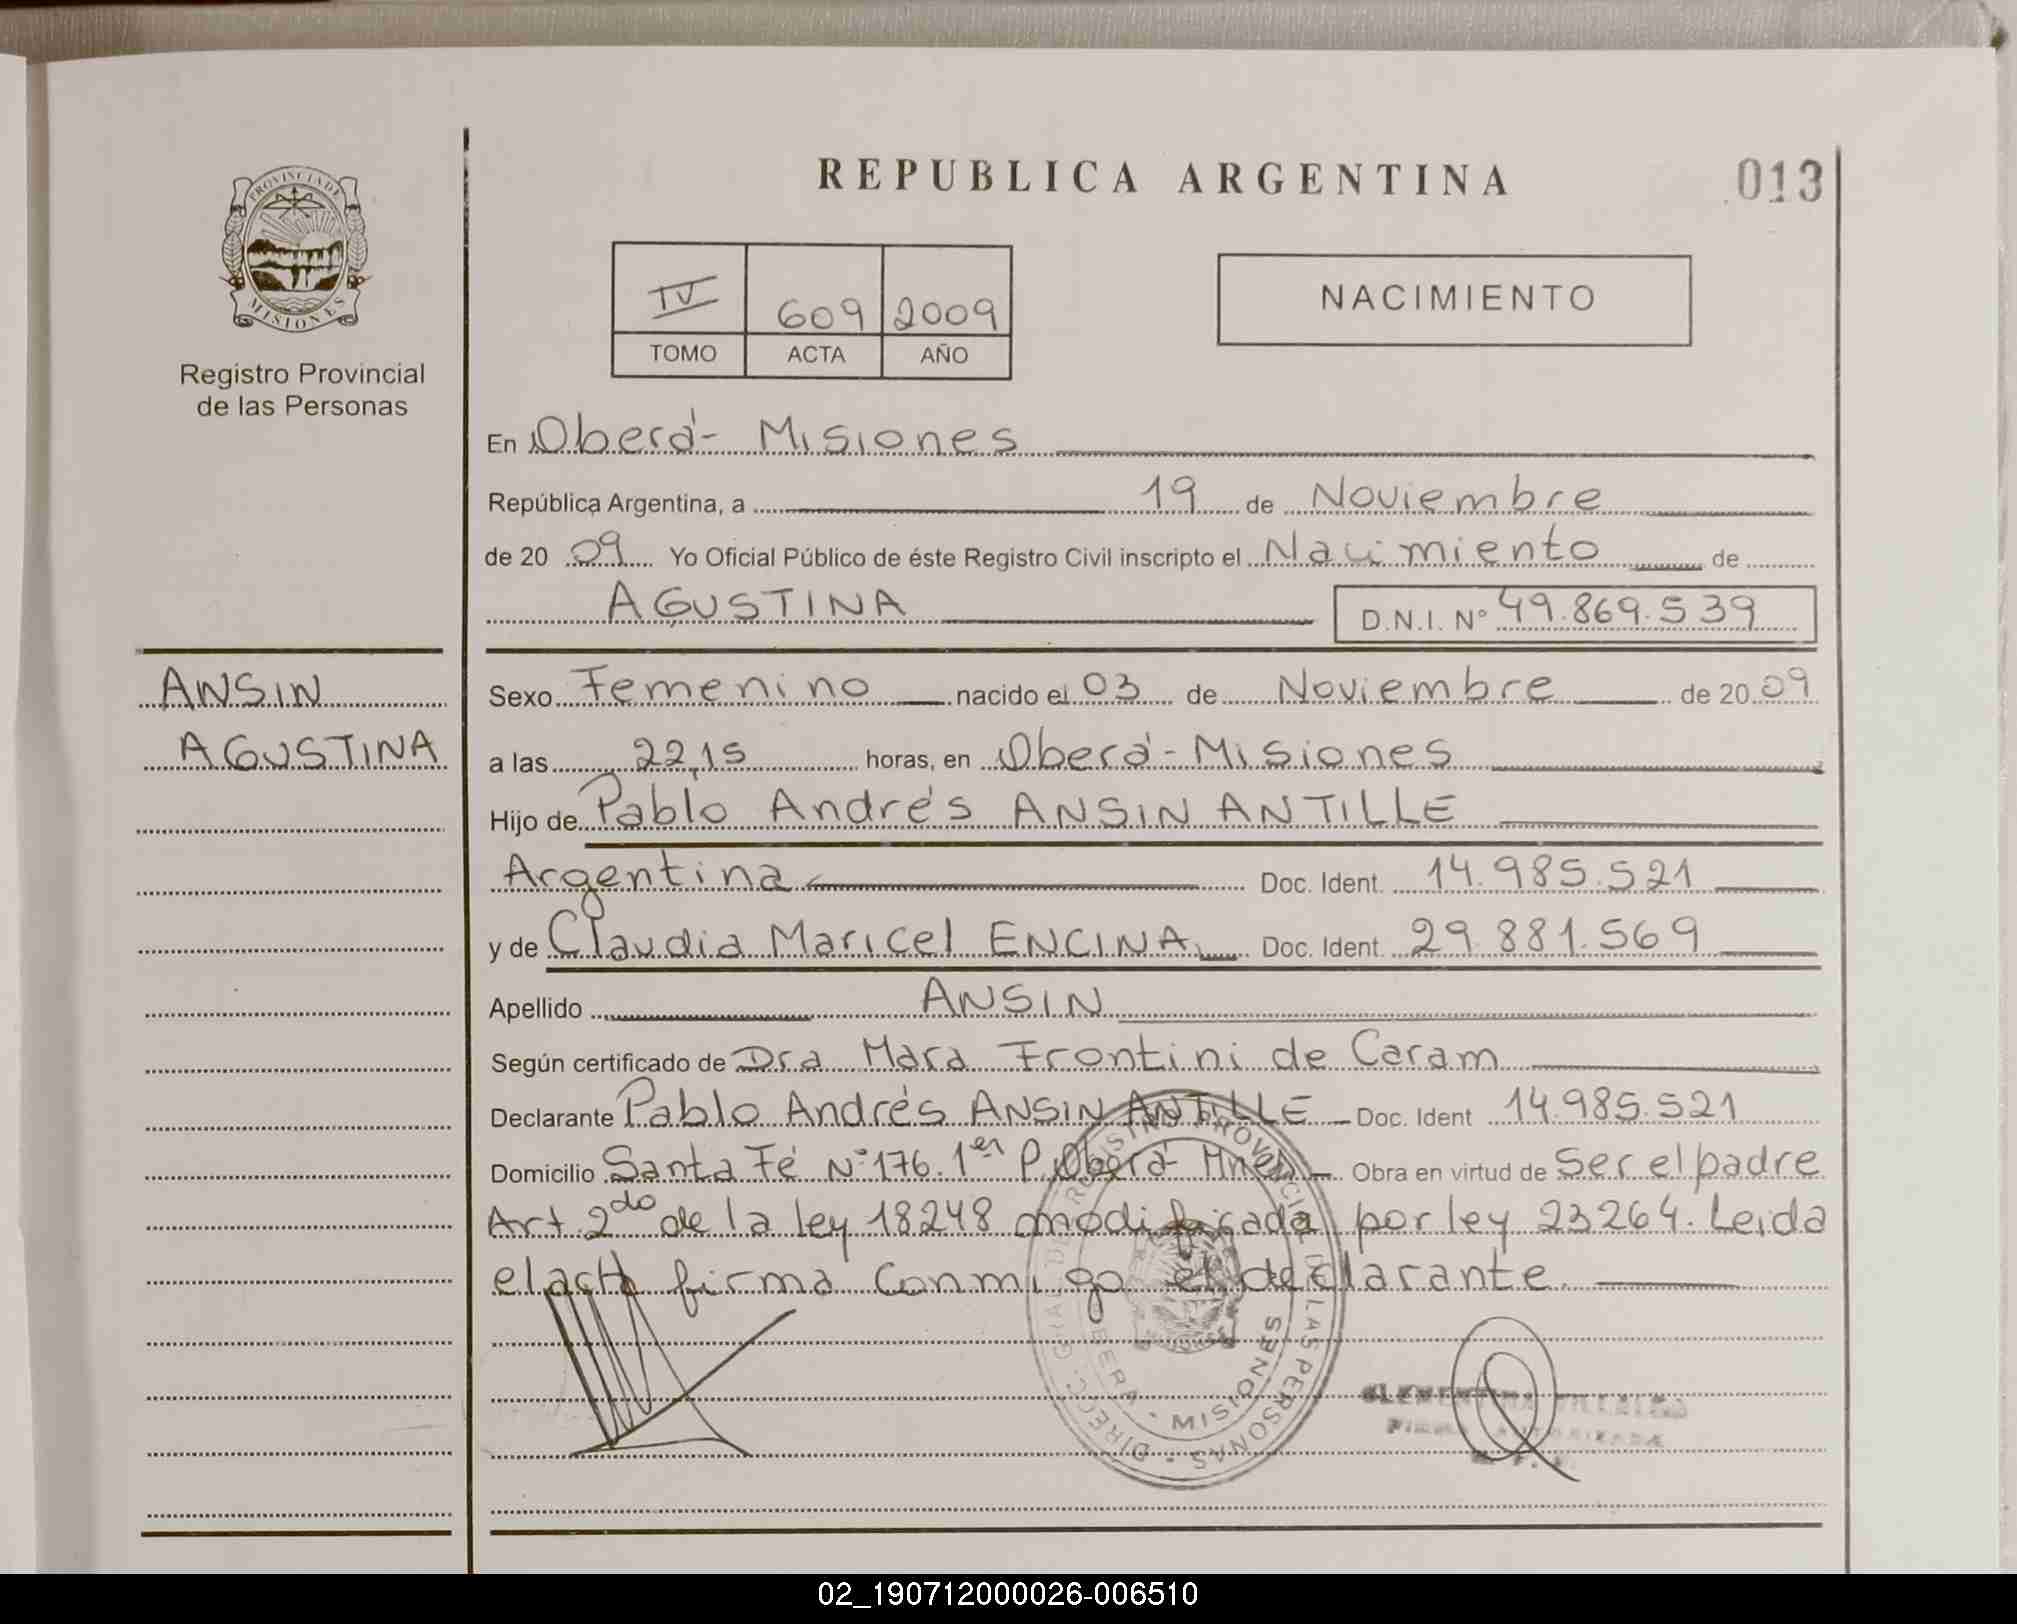 REPUBLICA ARGENTINA
013
PROVINCIA DE
MISIONES
Registro Provincial
de las Personas
IV 609 2009
TOMO ACTA AÑO
NACIMIENTO
En Oberá - Misiones
República Argentina, a 19 de Noviembre
de 20 09 Yo Oficial Público de éste Registro Civil inscripto el Nacimiento de
AGUSTINA D.N.I. Nº 49.869.539
ANSIN
AGUSTINA
Sexo Femenino nacido el 03 de Noviembre de 20 09
a las 22,15 horas, en Oberá - Misiones
Hijo de Pablo Andrés ANSIN ANTILLE
Argentina Doc. Ident. 14.985.521
y de Claudia Maricel ENCINA Doc. Ident. 29.881.569
Apellido ANSIN
Según certificado de Dra Mara Frontini de Caram
Declarante Pablo Andrés ANSIN ANTILLE Doc. Ident 14.985.521
Domicilio Santa Fé Nº 176. 1er P. Oberá - Mnes Obra en virtud de Ser el padre
Art. 2do de la ley 18248 modificada por ley 23264. Leida
el acto firma conmigo el declarante
MISIONES
02_190712000026-006510